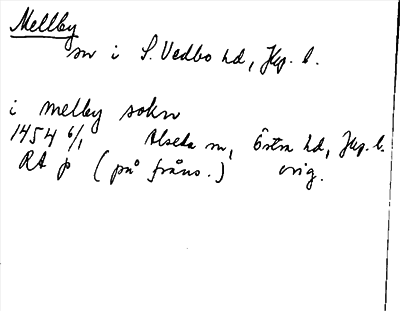 Mellby
sn i S. Vedbo hd, Jkp. l.
i melby sokn
1454 6/1 Alseda sn, Östra hd, Jkp. l.
RA p (på fråns.) orig.